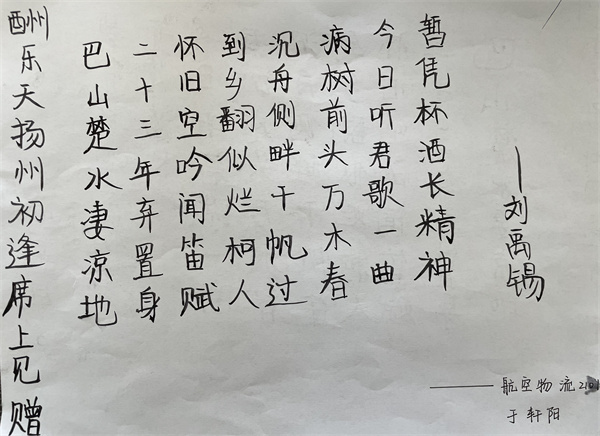 酬乐天扬州初逢席上见赠
巴山楚水凄凉地
二十三年弃置身
怀旧空吟闻笛赋
到乡翻似烂柯人
沉舟侧畔千帆过
病树前头万木春
今日听君歌一曲
暂凭杯酒长精神
——刘禹锡
——航空物流2101
于轩阳